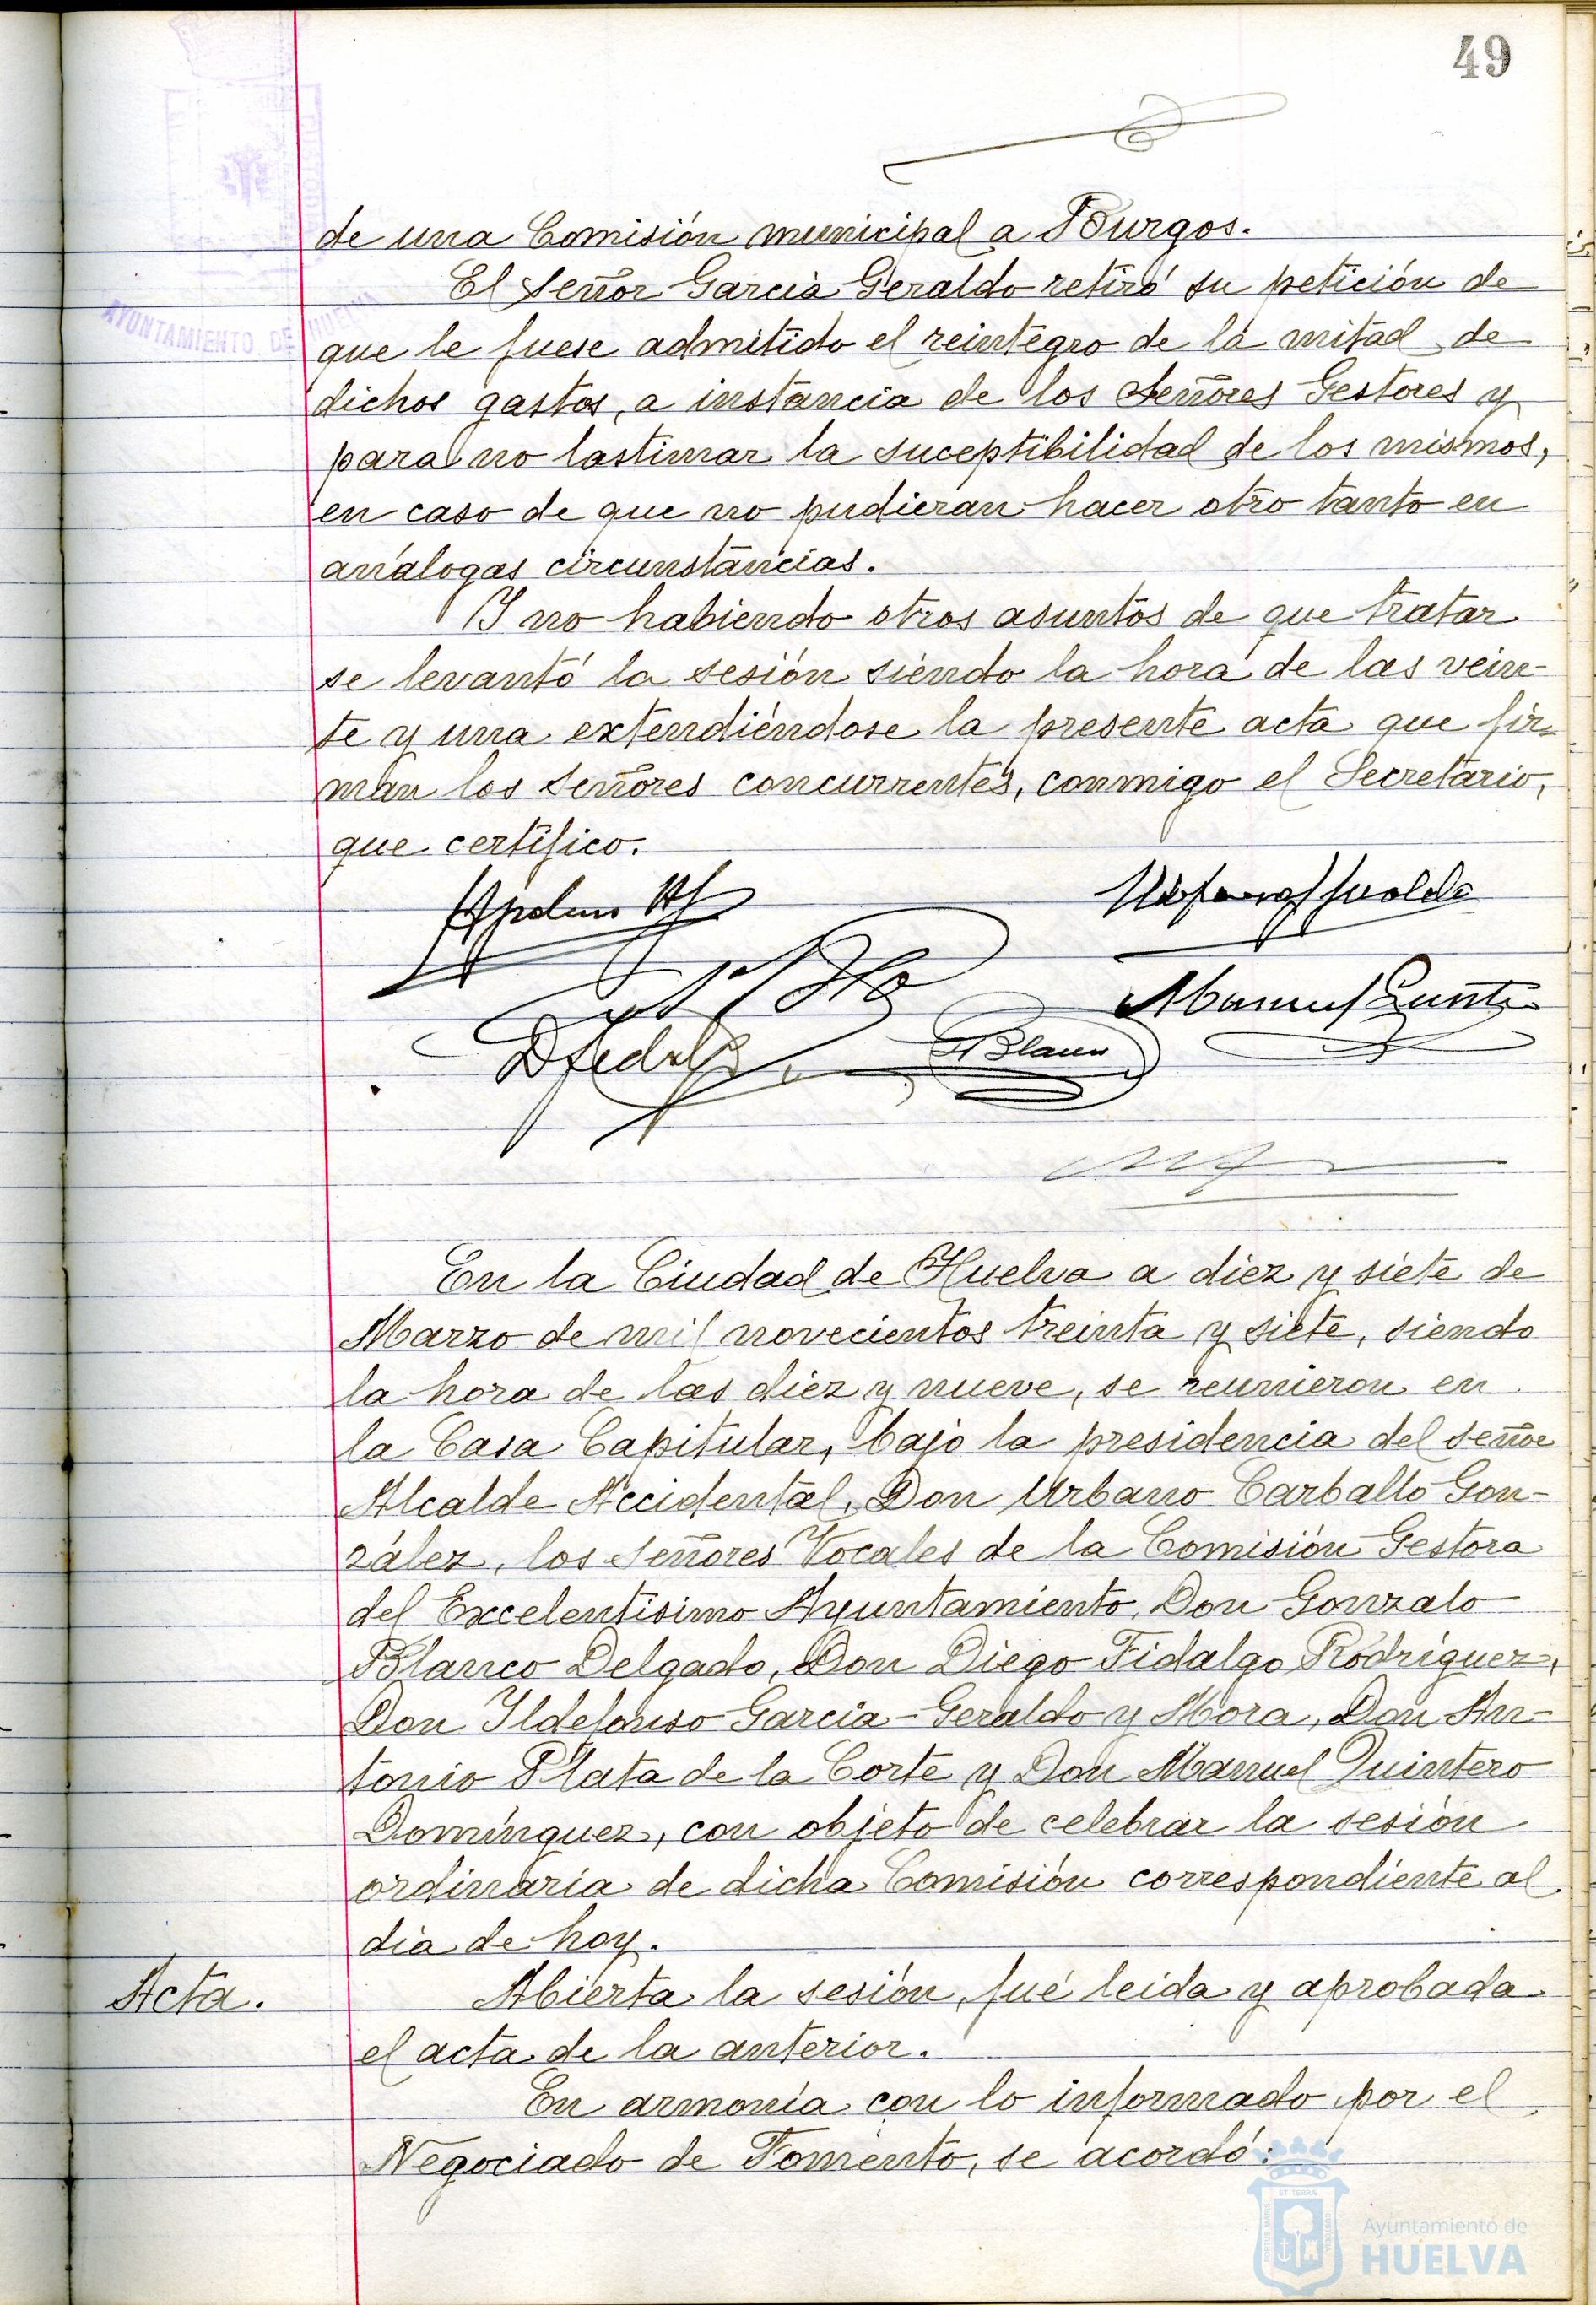 49
de una Comisión municipal a Burgos.
El Señor García Geraldo retiró su petición de
que le fuese admitido el reintegro de la mitad de
dichos gastos, a instancia de los Señores Gestores y
para no lastimar la suceptibilidad de los mismos,
en caso de que no pudieran hacer otro tanto en
análogas circunstancias.
Y no habiendo otros asuntos de que tratar
se levantó la sesión siendo la hora de las vein-
te y una extendiéndose la presente acta que fir-
man los Señores concurrentes, conmigo el Secretario,
que certifico.
Manuel Quinte
GBlanco
En la Ciudad de Huelva a diez y siete de
Marzo de mil novecientos treinta y siete, siendo
la hora de las diez y nueve, se reunieron en
la Casa Capitular, bajo la presidencia del Señor
Alcalde Accidental, Don Urbano Carballo Gon-
zález, los Señores Vocales de la Comisión Gestora
del Excelentísimo Ayuntamiento, Don Gonzalo
Blanco Delgado, Don Diego Fidalgo Rodríguez,
Don Ildefonso García-Geraldo y Mora, Don An-
tonio Plata de la Corte y Don Manuel Quintero
Domínguez, con objeto de celebrar la sesión
ordinaria de dicha Comisión correspondiente al
día de hoy.
Acta.
Abierta la sesión, fué leida y aprobada
el acta de la anterior.
En armonía con lo informado por el
Negociado de Fomento, se acordó:
AYUNTAMIENTO DE HUELVA
Ayuntamiento de
HUELVA